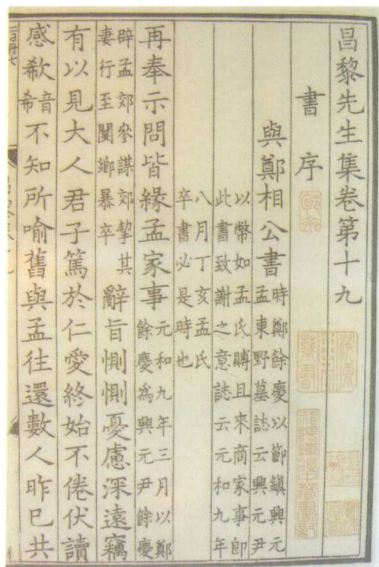 昌黎先生集卷第十九
書 序
與鄭相公書
時鄭餘慶以節鎮興元
孟東野墓誌云興元尹
以幣如孟氏賻且來商家事即
此書致謝之意誌云元和九年
八月丁亥孟氏
卒書必是時也
再奉示問皆緣孟家事
元和九年三月以鄭
餘慶為興元尹餘慶
辟孟郊參謀郊挈其
妻行至閿鄉暴卒
辭旨惻惻憂慮深遠竊
有以見大人君子篤於仁愛終始不倦伏讀
感欷
音
希
不知所喻舊與孟往還數人昨已共